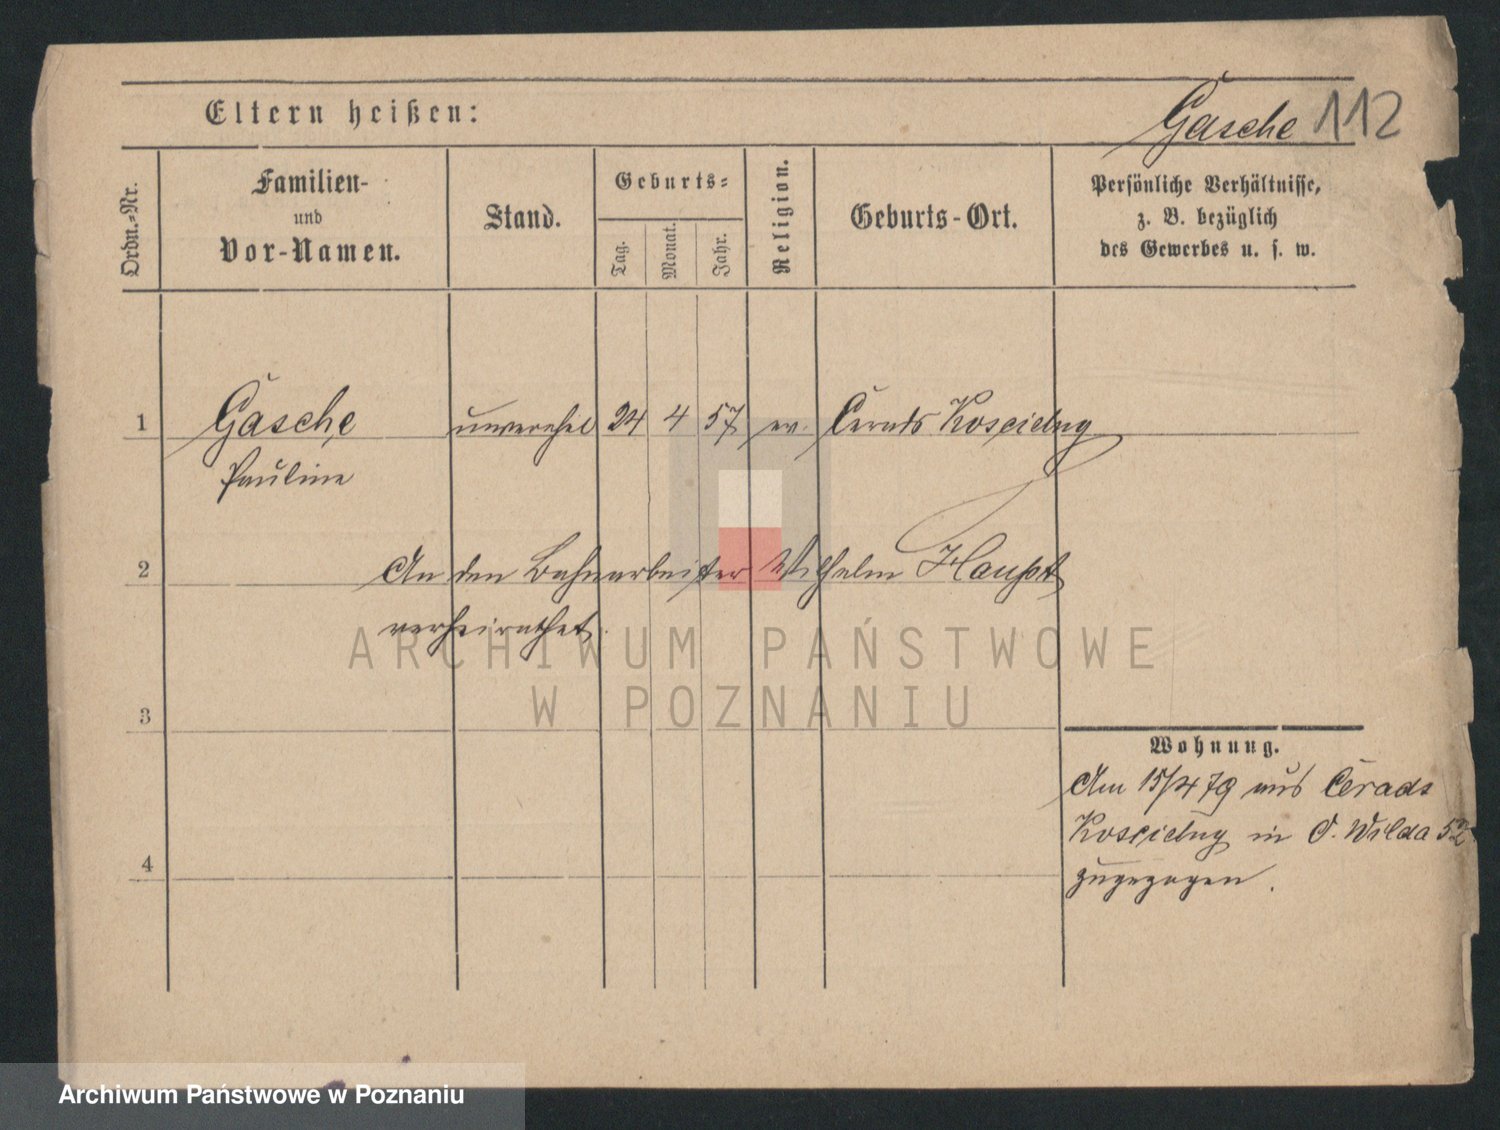 Eltern heißen:
Gasche 112
Ordn.-Nr.
Familien-
und
Vor-Namen.
Stand.
Geburts-
Tag.
Monat.
Jahr.
Religion.
Geburts-Ort.
Persönliche Verhältnisse,
z. B. bezüglich
des Gewerbes u. s. w.
1 Gasche, unverehel 24 4 57 ev. Ceradz Koscielny
Pauline
2 An den Bahnarbeiter Wilhelm Haupt
verheirathet.
ARCHIWUM PAŃSTWOWE
W POZNANIU
3
Wohnung.
Am 15/4 79 aus Ceradz
Koscielny in O. Wilda 52
zugezogen.
4
Archiwum Państwowe w Poznaniu